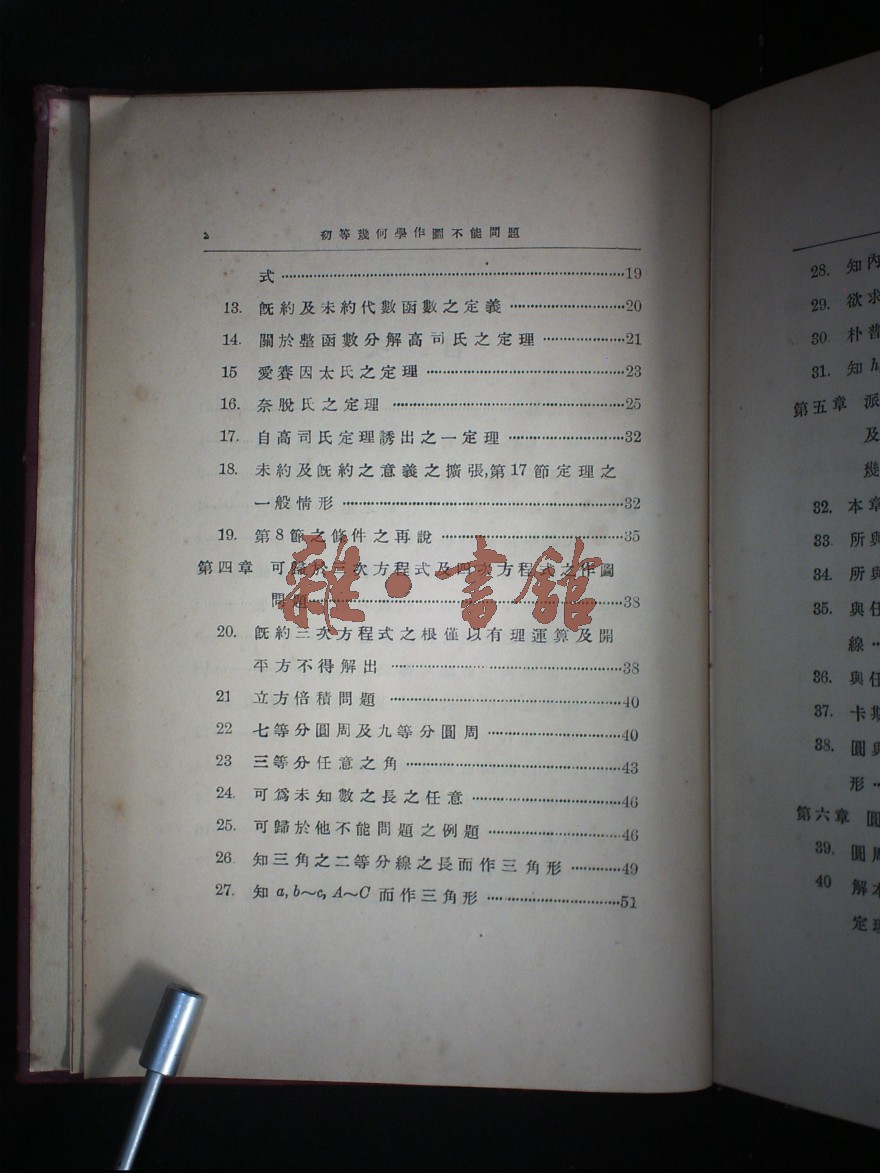 2 初等幾何學作圖不能問題
式……19
13. 旣約及未約代數函數之定義……20
14. 關於整函數分解高司氏之定理……21
15 愛賽因太氏之定理……23
16. 奈脫氏之定理……25
17. 自高司氏定理誘出之一定理……32
18. 未約及旣約之意義之擴張,第17節定理之
一般情形……32
19. 第8節之條件之再說……35
第四章 可歸於三次方程式及四次方程式之作圖
問題……38
20. 旣約三次方程式之根僅以有理運算及開
平方不得解出……38
21 立方倍積問題……40
22 七等分圓周及九等分圓周……40
23 三等分任意之角……43
24. 可爲未知數之長之任意……46
25. 可歸於他不能問題之例題……46
26. 知三角之二等分線之長而作三角形……49
27. 知 a, b~c, A~C 而作三角形……51
雜·書館
28. 知內
29. 欲求
30. 朴普
31. 知 h
第五章 派
及
幾
32. 本章
33. 所與
34. 所與
35. 與任
線…
36. 與任
37. 卡斯
38. 圓與
形…
第六章 圓
39. 圓周
40 解本
定理